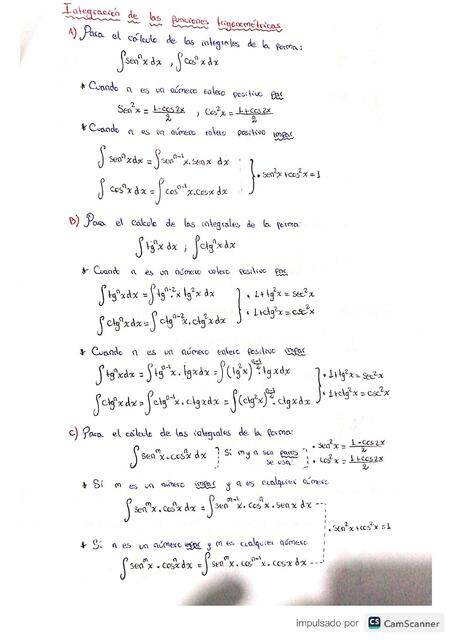 Integración de las funciones trigonométricas
A) Para el cálculo de las integrales de la forma:
∫senⁿx dx , ∫cosⁿx dx
* Cuando n es un número entero positivo par
Sen²x = 1-cos2x/2 , Cos²x = 1+cos2x/2
* Cuando n es un número entero positivo impar
∫senⁿxdx = ∫senⁿ⁻¹x.senx dx
∫cosⁿx dx = ∫cosⁿ⁻¹x.cosx dx } • sen²x+cos²x=1
B) Para el cálculo de las integrales de la forma:
∫tgⁿx dx ; ∫ctgⁿx dx
* Cuando n es un número entero positivo par
∫tgⁿxdx = ∫tgⁿ⁻²x tg²x dx } • 1+tg²x = sec²x
∫ctgⁿxdx = ∫ctgⁿ⁻²x.ctg²x dx • 1+ctg²x = csc²x
* Cuando n es un número entero positivo impar
∫tgⁿxdx = ∫tgⁿ⁻¹x.tgxdx = ∫(tg²x)^(n-1)/2 tgxdx } • 1+tg²x = sec²x
∫ctgⁿxdx = ∫ctgⁿ⁻¹x.ctgxdx = ∫(ctg²x)^(n-1)/2.ctgxdx • 1+ctg²x = csc²x
C) Para el cálculo de las integrales de la forma:
∫senᵐx.cosⁿx dx } Si m y n son pares se usa: • sen²x = 1-cos2x/2
• cos²x = 1+cos2x/2
* Si m es un número impar y n es cualquier número
∫senᵐx.cosⁿx dx = ∫senᵐ⁻¹x.cosⁿx.senx dx
• sen²x+cos²x=1
* Si n es un número impar y m es cualquier número
∫senᵐx.cosⁿx dx = ∫senᵐx.cosⁿ⁻¹x.cosx dx
impulsado por CS CamScanner